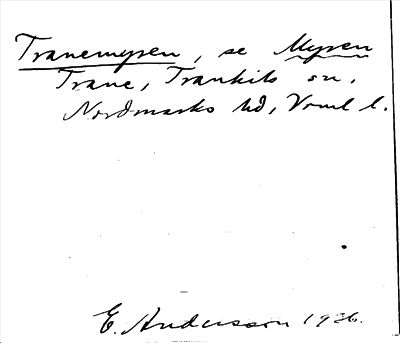 Tranemyren, se Myren
Trane, Trankils sn,
Nordmarks hd, Vrml l.
E. Andersson 1926.